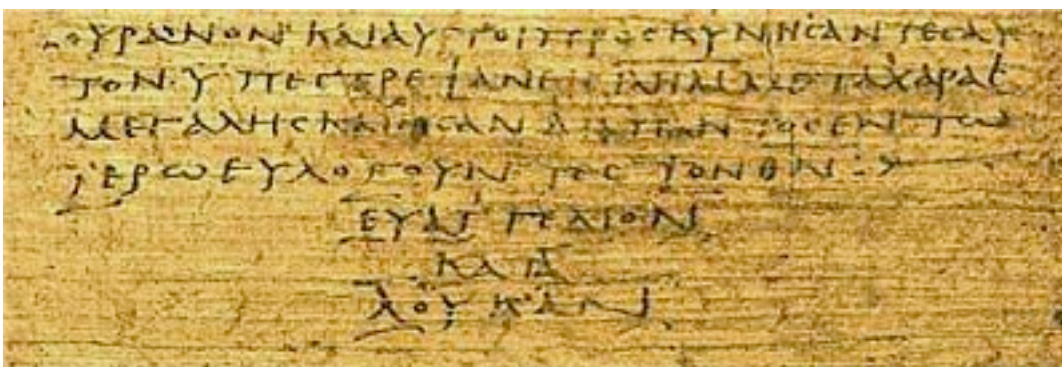 ΟΥΡΑΝΟΝ ΚΑΙ ΑΥΤΟΙ ΠΡΟCΚΥΝΗCΑΝΤΕC ΑΥ
ΤΟΝ ΥΠΕCΤΡΕΨΑΝ ΕΙC ΜΕΤΑ ΧΑΡΑC
ΜΕΓΑΛΗC ΚΑΙ ΗCΑΝ ΔΙΑ ΠΑΝΤΟC ΕΝ ΤΩ
ΙΕΡΩ ΕΥΛΟΓΟΥΝΤΕC ΤΟΝ ΘΝ
ΕΥΑΓΓΕΛΙΟΝ
ΚΑΤΑ
ΛΟΥΚΑΝ